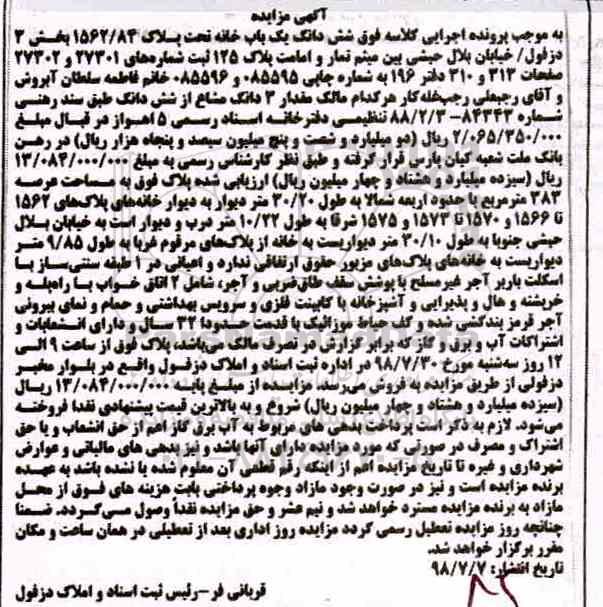 آگهی مزایده
به موجب پرونده اجرایی کلاسه فوق شش دانگ یک باب خانه تحت پلاک ۱۵۶۲/۸۴ بخش ۲
دزفول/ خیابان بلال حبشی بین میثم تمار و امامت پلاک ۱۲۵ ثبت شماره‌های ۲۷۳۰۱ و ۲۷۳۰۲
صفحات ۳۱۳ و ۳۱۰ دفتر ۱۹۶ به شماره چاپی ۰۸۵۵۹۵ و ۰۸۵۵۹۶ خانم فاطمه سلطان آبروش
و آقای رجبعلی رجب‌خله‌کار هرکدام مالک مقدار ۳ دانگ مشاع از شش دانگ طبق سند رهنی
شماره ۸۴۳۴۳- ۸۸/۲/۳ تنظیمی دفترخانه اسناد رسمی ۵ اهواز در قبال مبلغ
۲/۰۶۵/۳۵۰/۰۰۰ ریال (دو میلیارد و شصت و پنج میلیون سیصد و پنجاه هزار ریال) در رهن
بانک ملت شعبه کیان پارس قرار گرفته و طبق نظر کارشناسی رسمی به مبلغ ۱۳/۰۸۴/۰۰۰/۰۰۰
ریال (سیزده میلیارد و هشتاد و چهار میلیون ریال) ارزیابی شده پلاک فوق به مساحت عرصه
۲۸۳ مترمربع با حدود اربعه شمالا به طول ۳۰/۲۰ متر دیوار به دیوار خانه‌های پلاک‌های ۱۵۶۲
تا ۱۵۶۶ و ۱۵۷۰ تا ۱۵۷۳ و ۱۵۷۵ شرقا به طول ۱۰/۲۲ متر درب و دیوار است به خیابان بلال
حبشی جنوبا به طول ۳۰/۱۰ متر دیواریست به خانه از پلاک‌های مرقوم غربا به طول ۹/۸۵ متر
دیواریست به خانه‌های پلاک‌های مزبور حقوق ارتفاقی ندارد و اعیانی در ۱ طبقه سنتی‌ساز با
اسکلت باربر آجر غیرمسلح با پوشش سقف طاق‌ضربی و آجر، شامل ۲ اتاق خواب با راه‌پله و
خرپشته و هال و پذیرایی و آشپزخانه با کابینت فلزی و سرویس بهداشتی و حمام و نمای بیرونی
آجر قرمز بندکشی شده و کف حیاط موزائیک با قدمت حدودا ۳۲ سال و دارای انشعابات و
اشتراکات آب و برق و گاز که برابر گزارش در تصرف مالک می‌باشد، پلاک فوق از ساعت ۹ الی
۱۲ روز سه‌شنبه مورخ ۹۸/۷/۳۰ در اداره ثبت اسناد و املاک دزفول واقع در بلوار مخبر
دزفولی از طریق مزایده به فروش می‌رسد، مزایده از مبلغ پایه ۱۳/۰۸۴/۰۰۰/۰۰۰ ریال
(سیزده میلیارد و هشتاد و چهار میلیون ریال) شروع و به بالاترین قیمت پیشنهادی نقدا فروخته
می‌شود. لازم به ذکر است پرداخت بدهی های مربوط به آب برق گاز اعم از حق انشعاب و یا حق
اشتراک و مصرف در صورتی که مورد مزایده دارای آنها باشد و نیز بدهی های مالیاتی و عوارض
شهرداری و غیره تا تاریخ مزایده اعم از اینکه رقم قطعی آن معلوم شده یا نشده باشد به عهده
برنده مزایده است و نیز در صورت وجود مازاد وجوه پرداختی بابت هزینه های فوق از محل
مازاد به برنده مزایده مسترد خواهد شد و نیم عشر و حق مزایده نقداً وصول می‌گردد. ضمنا
چنانچه روز مزایده تعطیل رسمی گردد مزایده روز اداری بعد از تعطیلی در همان ساعت و مکان
مقرر برگزار خواهد شد.
تاریخ انتشار: ۹۸/۷/۷
قربانی فر-رئیس ثبت اسناد و املاک دزفول